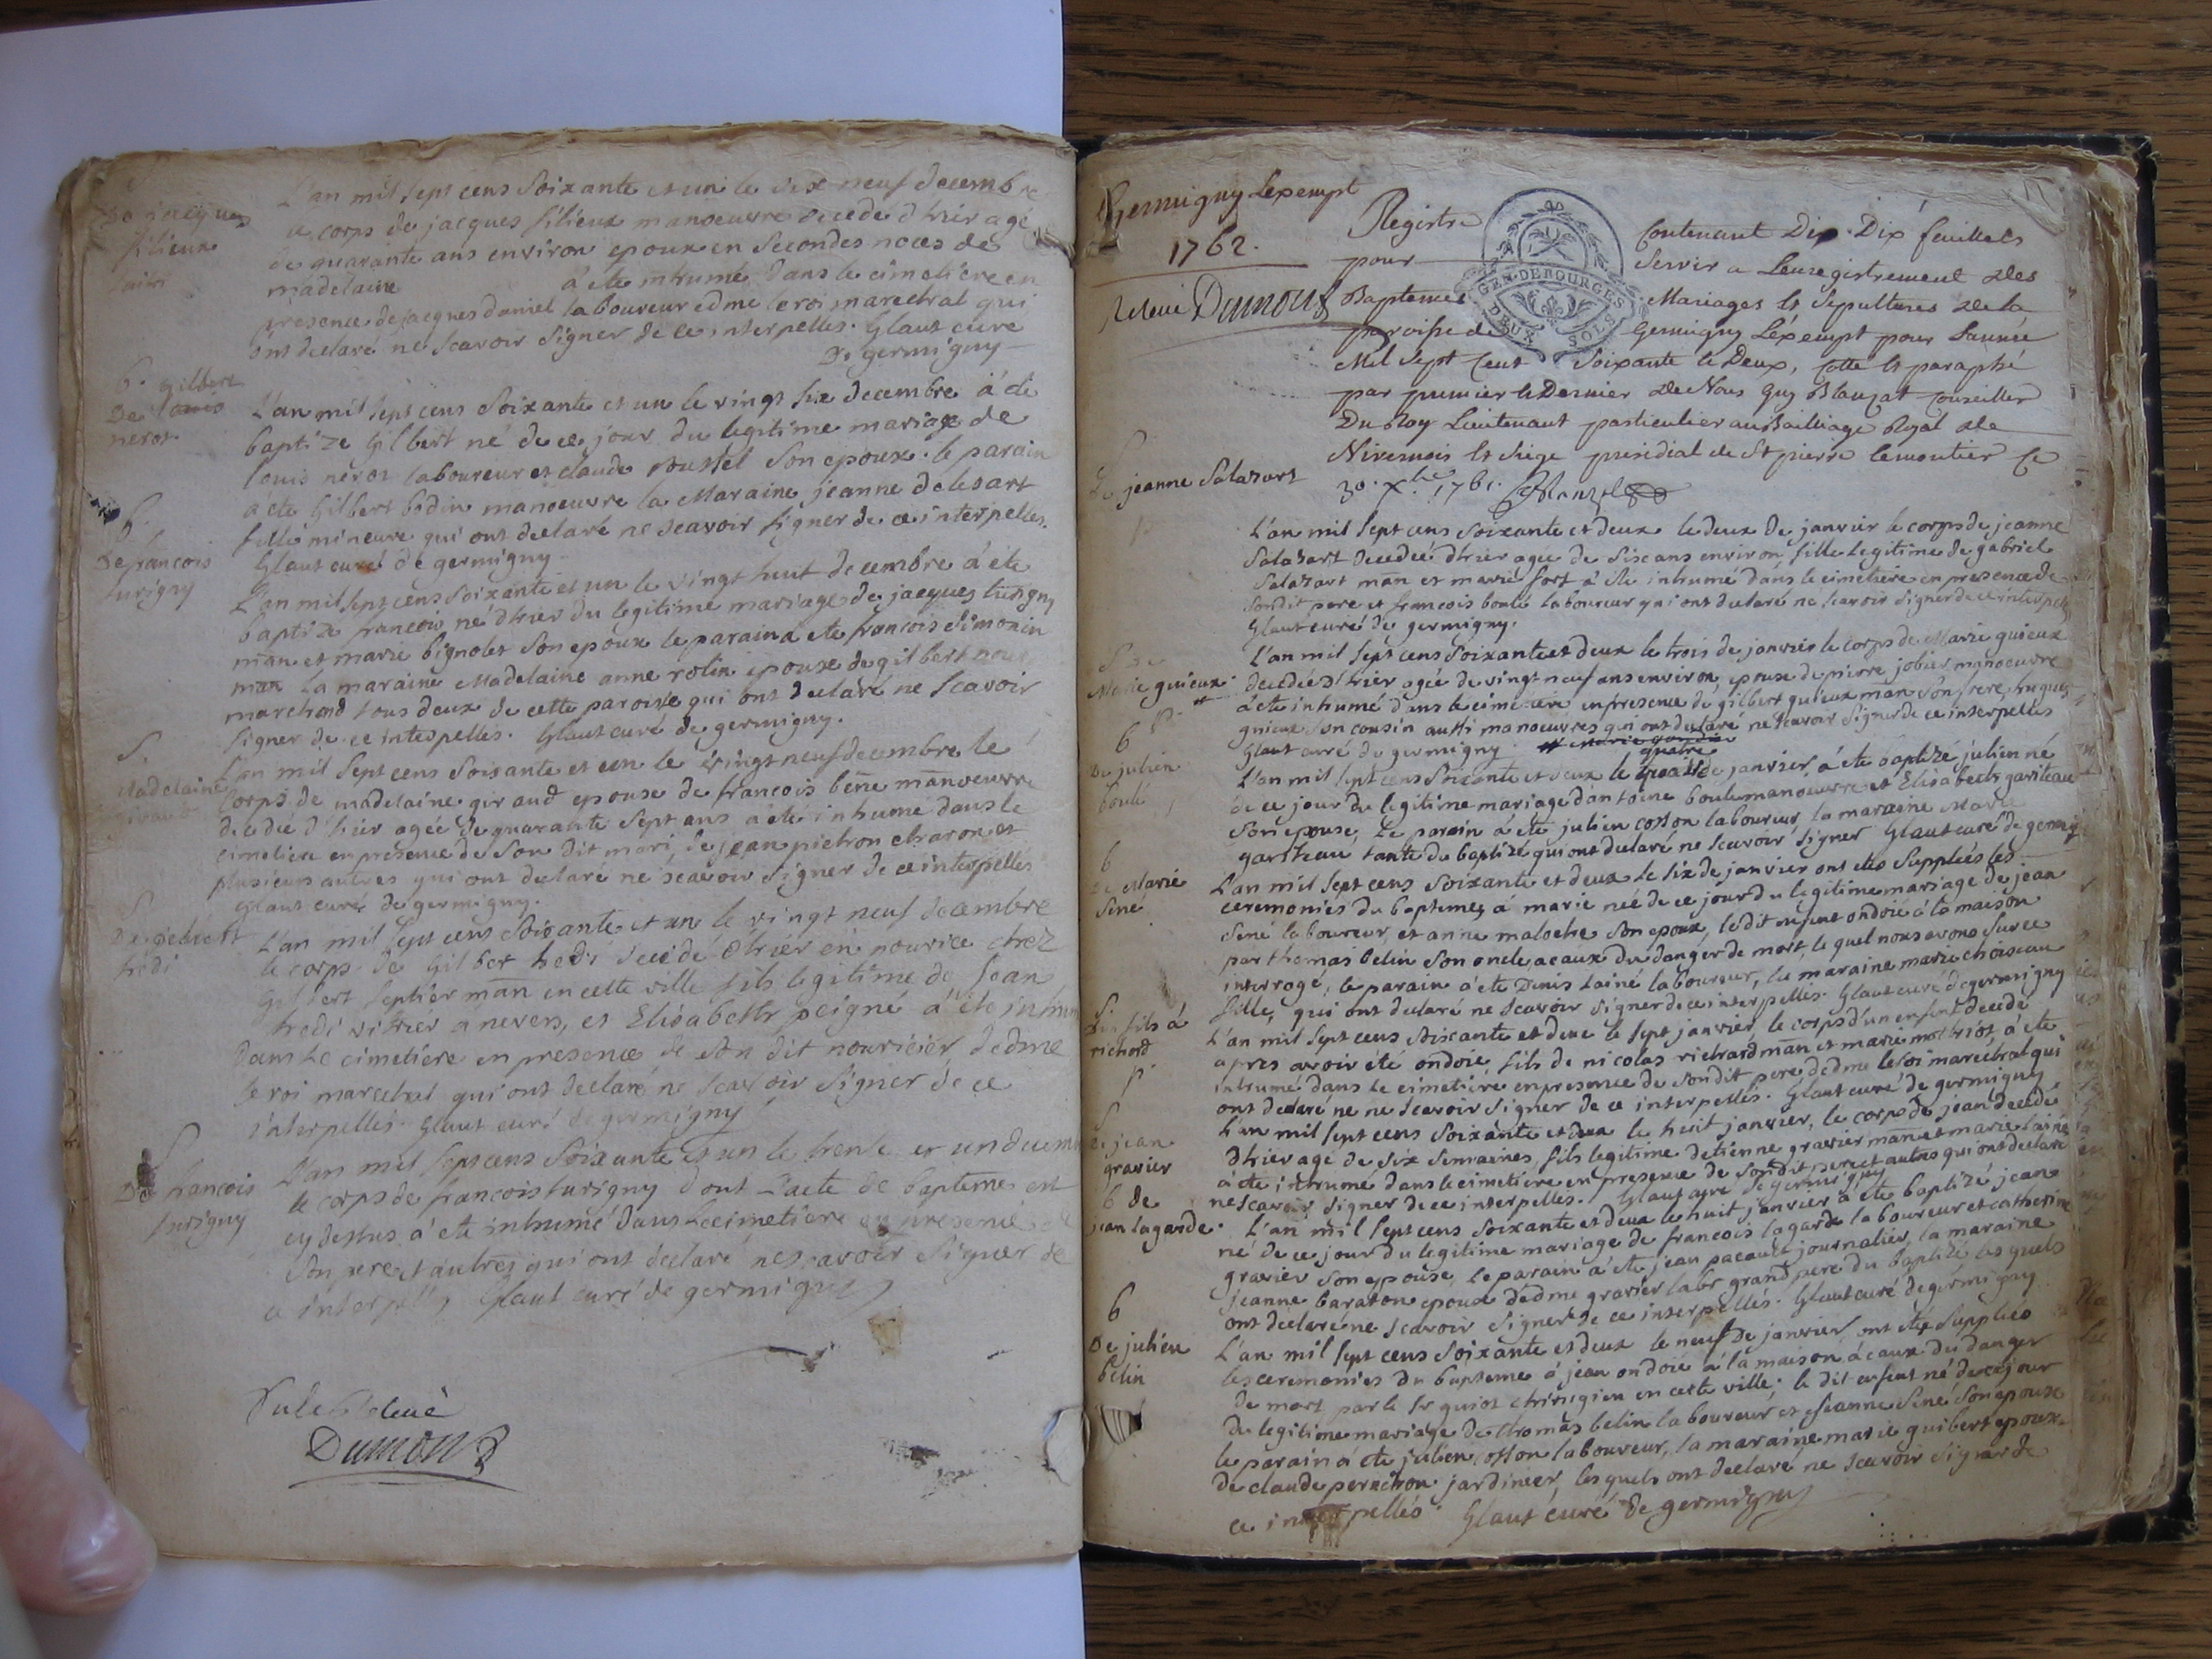 De jacques
filieux
L'an mil sept cens soixante et un le dix neuf decembre
le corps de jacques filieux manoeuvre decede d'hier agé
de quarante ans environ epoux en secondes noces de
madelaine a ete inhumé dans le cimetiere en
presence de jacques daniel laboureur edme le roi marechal qui
ont declaré ne scavoir signer de ce interpellés. Glaut curé
De germigny
b. gilbert
De louis
nerot
L'an mil sept cens soixante et un le vingt six decembre a été
baptize Gilbert né de ce jour du legitime mariage de
louis nerot laboureur et claude roussel son epouse. le parain
a ete Gilbert bodin manoeuvre la Maraine jeanne delesart
fille mineure qui ont declaré ne scavoir signer de ce interpelles.
Glaut curé de germigny
b.
De francois
turigny
L'an mil sept cens soixante et un le vingt huit decembre a ete
baptizé francois né d'hier du legitime mariage de jacques turigny
man et marie bignolet son epouse le parain a ete francois simonin
man la maraine Madelaine anne rolin epouse de gilbert
marchand tous deux de cette paroisse qui ont declaré ne scavoir
signer de ce interpelles. Glaut curé de germigny.
S.
Madelaine
giraud
L'an mil sept cens soixante et un le vingt neuf decembre le
corps de madelaine giraud epouse de francois béne manoeuvre
decedée d'hier agée de quarante sept ans a été inhumé dans le
cimetiere en presence de son dit mari, de jean pichon charon et
plusieurs autres qui ont declaré ne scavoir signer de ce interpellés
Glaut curé de germigny.
S
De gilbert
hédi
L'an mil sept cens soixante et un le vingt neuf decembre
le corps de Gilbert hedi decedé d'hier en nourice chez
Gilbert septier man en cette ville fils legitime de Jean
hedi vitrier a nevers, et Elisabeth peigné a été inhumé
dans le cimetiere en presence de son dit nouricier d'edme
le roi marechal qui ont declaré ne scavoir signer de ce
interpellés. Glaut curé de germigny
S
De francois
turigny
L'an mil sept cens soixante et un le trente et un decembre
le corps de francois turigny dont l'acte de bapteme est
cy dessus a été inhumé dans le cimetiere en presence de
son pere et autres qui ont declaré ne scavoir signer de
ce interpellés Glaut curé de germigny
Dumont
Germigny Lexempt
1762.
Dumont
Registre Contenant Dix Dix feuillets
pour Servir a Lenregistrement des
Baptemes Mariages Et Sepultures de la
paroisse de Germigny Léxempt pour Lannée
Mil Sept Cent Soixante et Deux, Cotté Et paraphé
par premier et Dernier de Nous Guy Blauzat Conseiller
Du Roy Lieutenant particulier au Bailliage Royal de
Nivernois Et Siege presidial de St pierre lemoutier Ce
30. Xbre. 1761. Blauzat
GEN. DE BOURGES
DEUX SOLS
De jeanne Salazart
L'an mil sept cens soixante et deux le deux de janvier le corps de jeanne
Salazart decedée d'hier agée de six ans environ fille legitime de gabriel
Salazart man et marie fort a ete inhumé dans le cimetiere en presence de
son dit pere et francois boulé laboureur qui ont declaré ne scavoir signer de ce interpellés
Glaut curé de germigny.
S de
Marie guieux
L'an mil sept cens soixante et deux le trois de janvier le corps de Marie guieux
decedée d'hier agée de vingt neuf ans environ, epouse de pierre jobier manoeuvre
a ete inhumé dans le cimetiere en presence de gilbert guieux man son frere hugues
guieux son cousin aussi manoeuvres qui ont declaré ne scavoir signer de ce interpelles
Glaut curé de germigny
b
De julien
boulé
quatre
L'an mil sept cens soixante et deux le de janvier, a ete baptizé julien né
de ce jour du legitime mariage d'antoine boule manoeuvre et Elisabeth gariteau
son epouse, le parain a été julien cosson laboureur, la maraine Marie
gariteau tante du baptizé qui ont declaré ne scavoir signer Glaut curé de germigny
b
De Marie
Sené
L'an mil sept cens soixante et deux le six de janvier ont etés suppléés les
ceremonies du baptemes a marie née de ce jour du legitime mariage de jean
Sené laboureur, et anne maloche son epouse, ledit enfant ondoié a la maison
par thomas belin son oncle, a caux du danger de mort, le quel nous avons sur ce
interrogé, le parain a ete Denis Lainé laboureur, la maraine marie choiseau
fille, qui ont declaré ne scavoir signer de ce interpellés. Glaut curé de germigny
S.
D'un fils á
richard
L'an mil sept cens soixante et deux le sept janvier, le corps d'un enfant decedé
apres avoir été ondoié, fils de nicolas richard man et marie mochiot, a ete
inhumé dans le cimetiere en presence de son dit pere d'edme le roi marechal qui
ont declaré ne ne scavoir signer de ce interpellés. Glaut curé de germigny
S
De jean
gravier
L'an mil sept cens soixante et deux le huit janvier, le corps de jean decede
d'hier agé de six semaines, fils legitime d'etienne gravier man et marie lainé
a ete inhumé dans le cimetiere en presence de son dit pere et autres qui ont declaré
ne scavoir signer de ce interpelles. Glaut curé de germigny
b de
jean lagarde.
L'an mil sept cens soixante et deux le huit janvier a ete baptizé jean
né de ce jour du legitime mariage de francois lagarde laboureur et catherine
gravier son epouse, le parain a ete jean pacault journalier, la maraine
jeanne baraton epouse d'edme gravier labr grand pere du baptizé, les quels
ont declaré ne scavoir signer de ce interpellés. Glaut curé de germigny
b
De julien
belin
L'an mil sept cens soixante et deux le neuf de janvier ont été supplées
les ceremonies du bapteme a jean ondoié a la maison a caux du danger
de mort par le Sr guiot chirurgien en cette ville; le dit enfant né de ce jour
du legitime mariage de thomas belin laboureur et Jeanne Sené son epouse
le parain a ete julien cosson laboureur, la maraine marie guibert epouse
de claude perichon jardinier, les quels ont declaré ne scavoir signer de
ce interpellés. Glaut curé de germigny